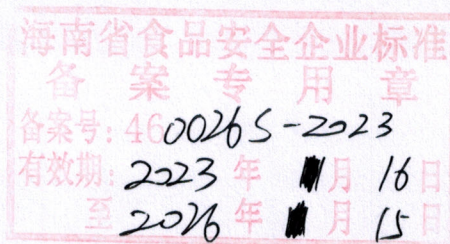 海南省食品安全企业标准
备案专用章
备案号:460026S-2023
有效期:2023年 月16日
至2026年 月15日